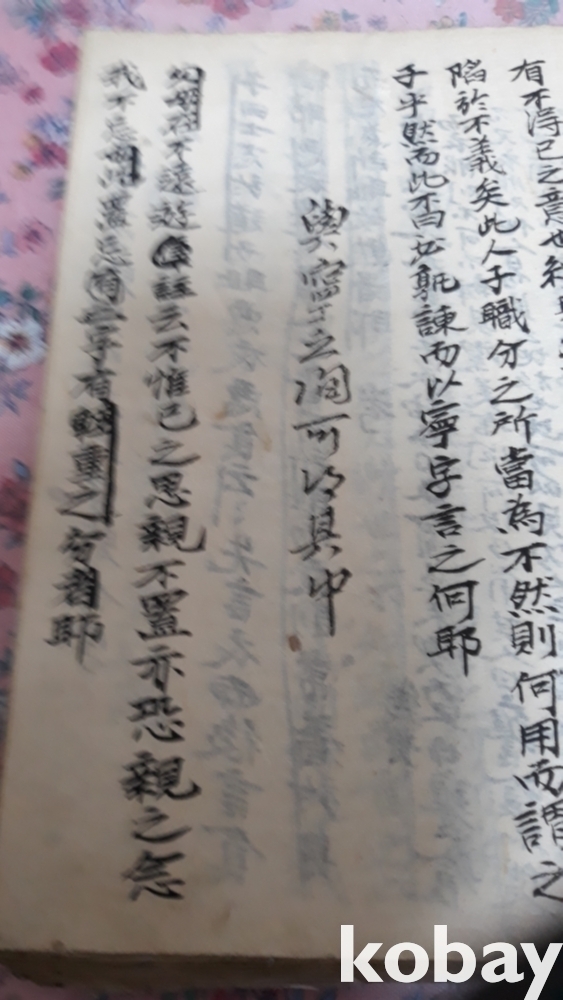 有不得已之意也
陷於不義矣此人子職分之所當為不然則何用而謂之
子乎然而此不曰必孰諫而以寧字言之何耶
與寧之洞可以具中
父母在不遠遊章註云不惟己之思親不置亦恐親之念
我不忘置忘二字有輕重之分者耶
kobay